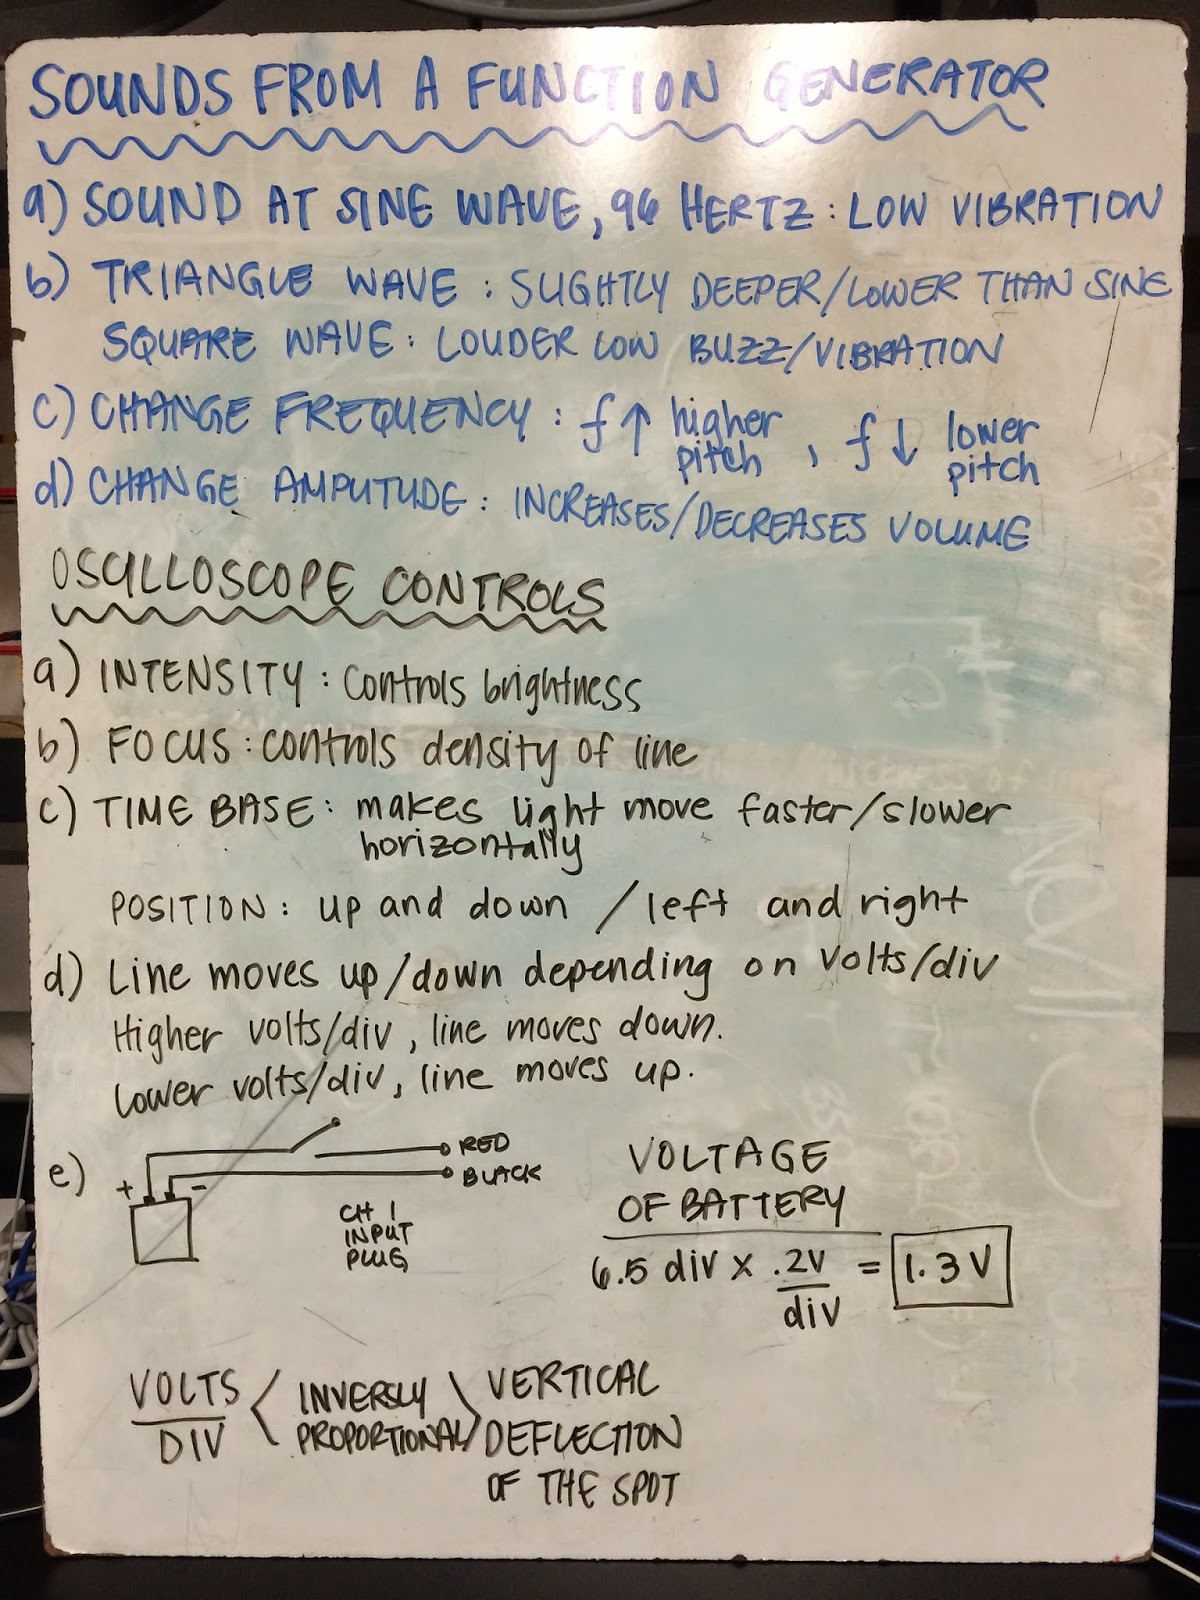 SOUNDS FROM A FUNCTION GENERATOR
a) SOUND AT SINE WAVE, 96 HERTZ: LOW VIBRATION
b) TRIANGLE WAVE: SLIGHTLY DEEPER/LOWER THAN SINE
SQUARE WAVE: LOUDER LOW BUZZ/VIBRATION
c) CHANGE FREQUENCY: f↑ higher pitch, f↓ lower pitch
d) CHANGE AMPLITUDE: INCREASES/DECREASES VOLUME
OSCILLOSCOPE CONTROLS
a) INTENSITY: controls brightness
b) FOCUS: controls density of line
c) TIME BASE: makes light move faster/slower
horizontally
POSITION: up and down / left and right
d) Line moves up/down depending on volts/div
Higher volts/div, line moves down.
Lower volts/div, line moves up.
e) + -
RED
BLACK
CH 1
INPUT
PLUG
VOLTAGE
OF BATTERY
6.5 div x .2V/div = 1.3 V
VOLTS/DIV < INVERSLY PROPORTIONAL > VERTICAL
DEFLECTION
OF THE SPOT